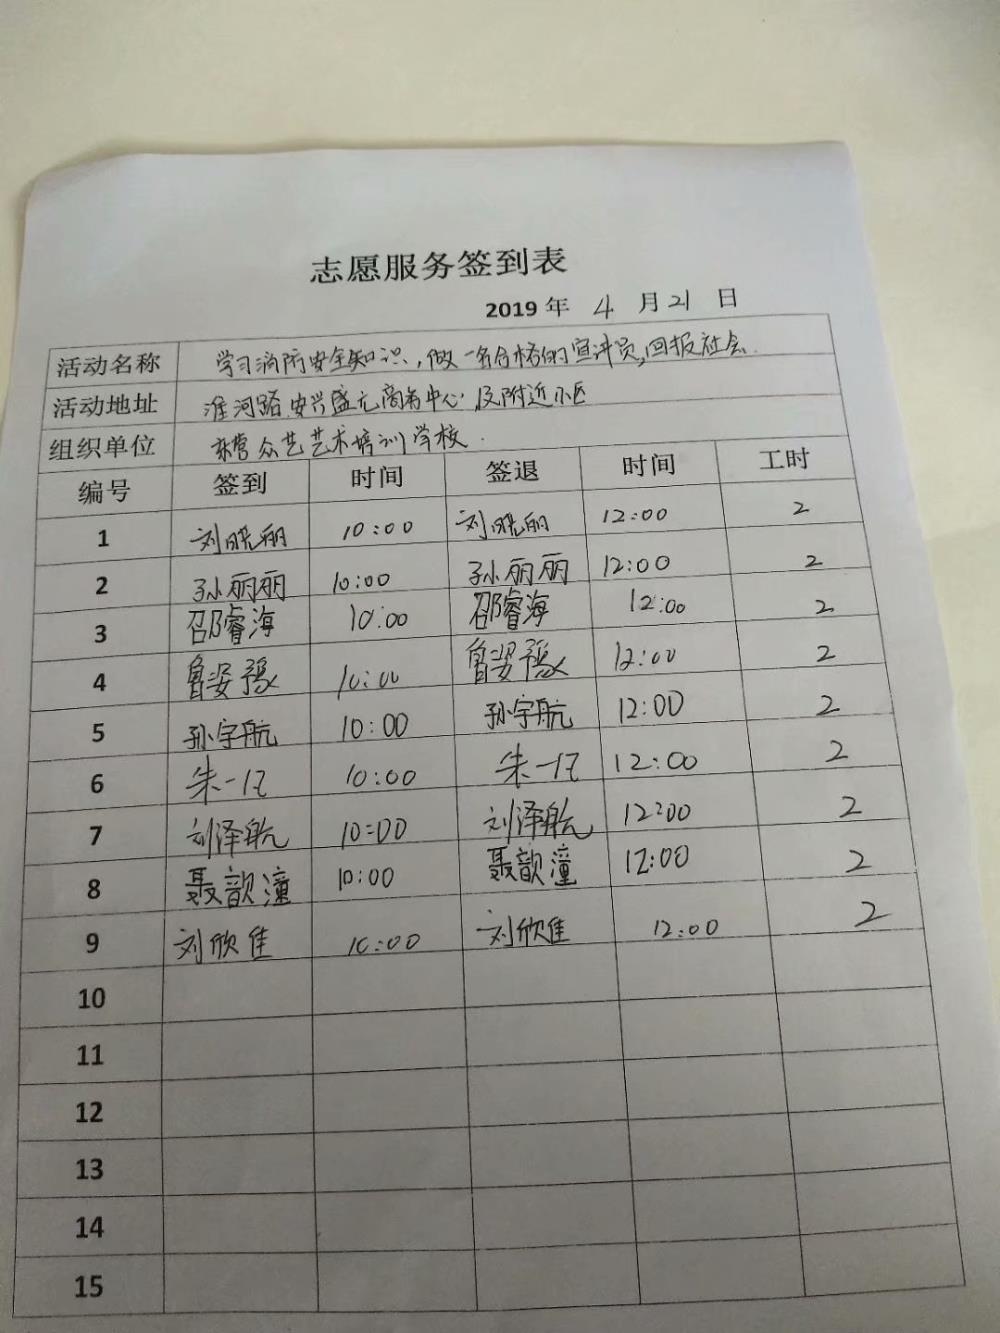 志愿服务签到表
2019 年 4 月 21 日
活动名称 学习消防安全知识,做一名合格的宣讲员,回报社会.
活动地址 淮河路安兴盛元商务中心,及附近小区
组织单位 众艺艺术培训学校.
编号 签到 时间 签退 时间 工时
1 刘晓丽 10:00 刘晓丽 12:00 2
2 孙丽丽 10:00 孙丽丽 12:00 2
3 邵睿海 10:00 邵睿海 12:00 2
4 鲁姿豫 10:00 鲁姿豫 12:00 2
5 孙宇航 10:00 孙宇航 12:00 2
6 朱一 10:00 朱一 12:00 2
7 刘泽航 10:00 刘泽航 12:00 2
8 聂歆潼 10:00 聂歆潼 12:00 2
9 刘欣佳 10:00 刘欣佳 12:00 2
10
11
12
13
14
15